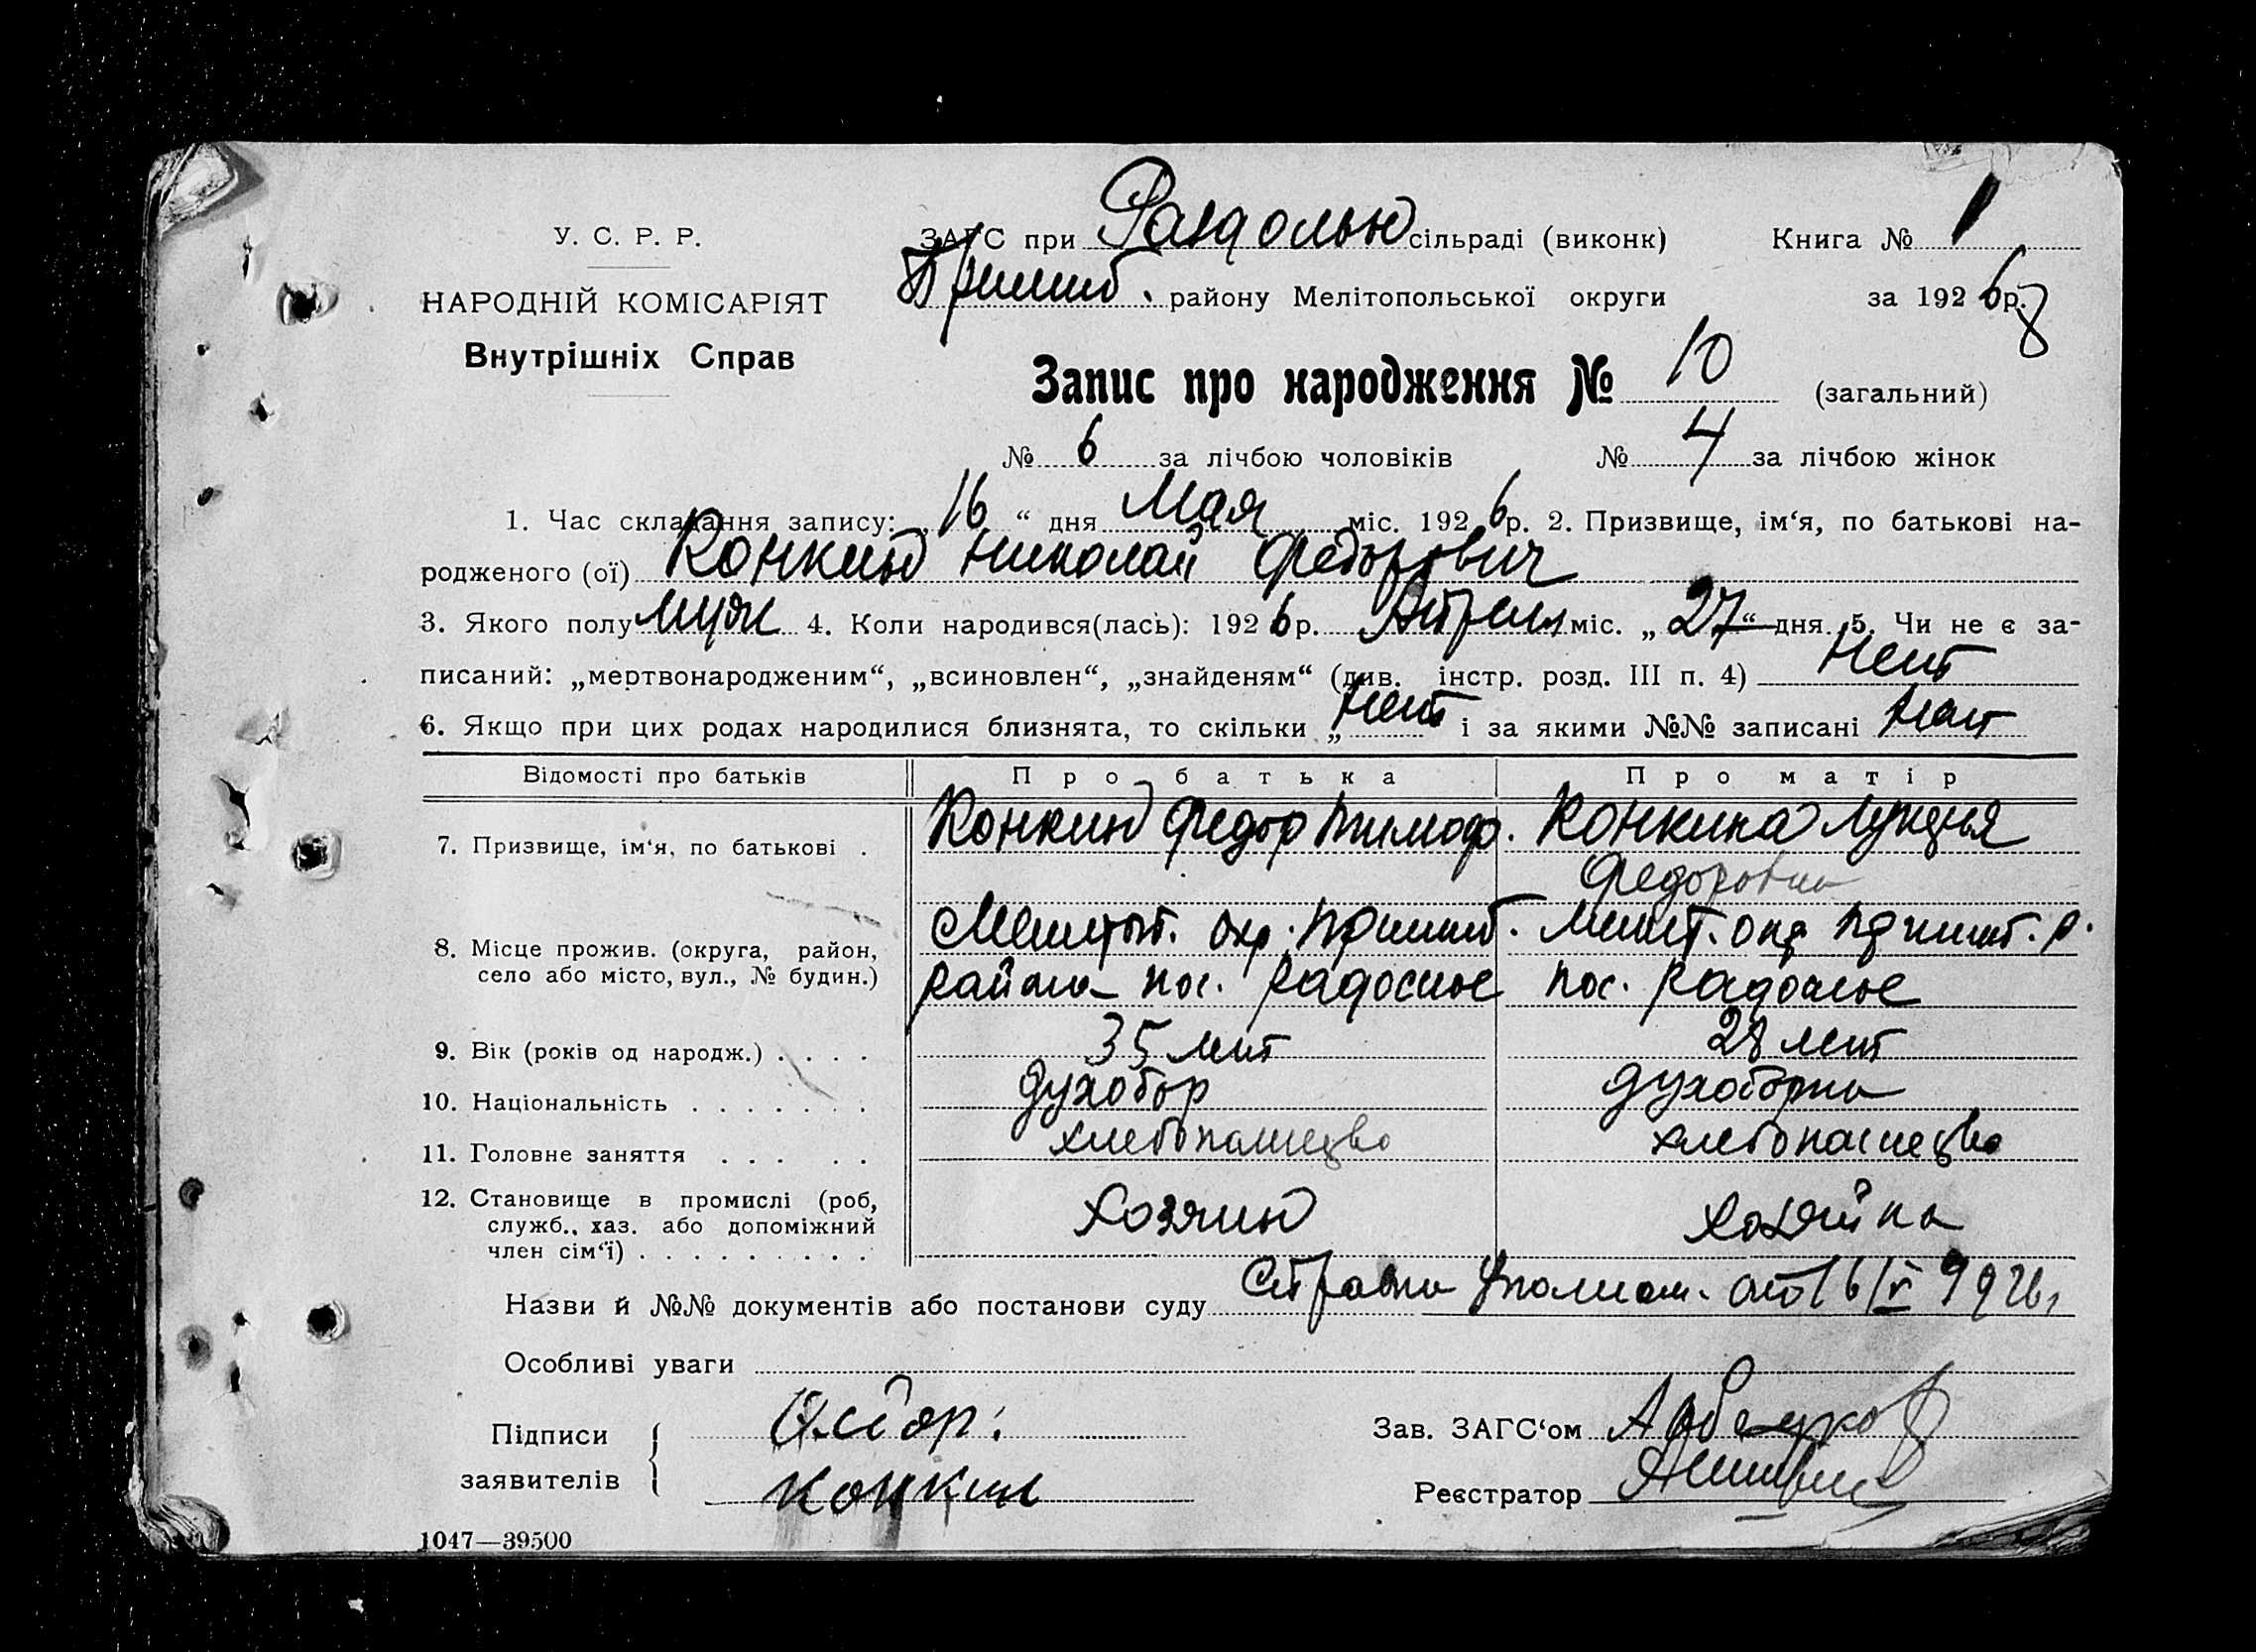 У. С. Р. Р.
НАРОДНІЙ КОМІСАРІЯТ
Внутрішніх Справ
ЗАГС при Раздолью сільраді (виконк) Книга № 1
Пришиб. району Мелітопольської округи за 1926 р. 8
Запис про народження № 10 (загальний)
№ 6 за лічбою чоловіків № 4 за лічбою жінок
1. Час складання запису: 16 “ дня Мая міс. 1926 р. 2. Призвище, ім‘я, по батькові на-
родженого (ої) Конкин Николай Федорович
3. Якого полу муж 4. Коли народився(лась): 1926 р. Апреля міс. „ 27 “ дня. 5. Чи не є за-
писаний: „мертвонародженим“, „всиновлен“, „знайденям“ (див. інстр. розд. III п. 4) Нет
6. Якщо при цих родах народилися близнята, то скільки „ Нет і за якими №№ записані Нет
Відомості про батьків Про батька Про матір
7. Призвище, ім‘я, по батькові . Конкин Федор Тимоф. Конкина Лукерья
Федоровна
8. Місце прожив. (округа, район, село або місто, вул., № будин.) Мелитоп. окр. Пришиб. Мелит. окр Пришиб. р.
района пос. пос.
9. Вік (років од народж.) . . . . 35 лет 28 лет
10. Національність . . . . . . . духобор духоборка
11. Головне заняття . . . . . хлебопашецво хлебопашецво
12. Становище в промислі (роб, служб., хаз. або допоміжний член сім‘ї) . . . . . . . . . Хозяин Хозяйка
Назви й №№ документів або постанови суду от 16/V 1926
Особливі уваги
Підписи заявителів Федор. Зав. ЗАГС‘ом
Конкин Реєстратор
1047—39500